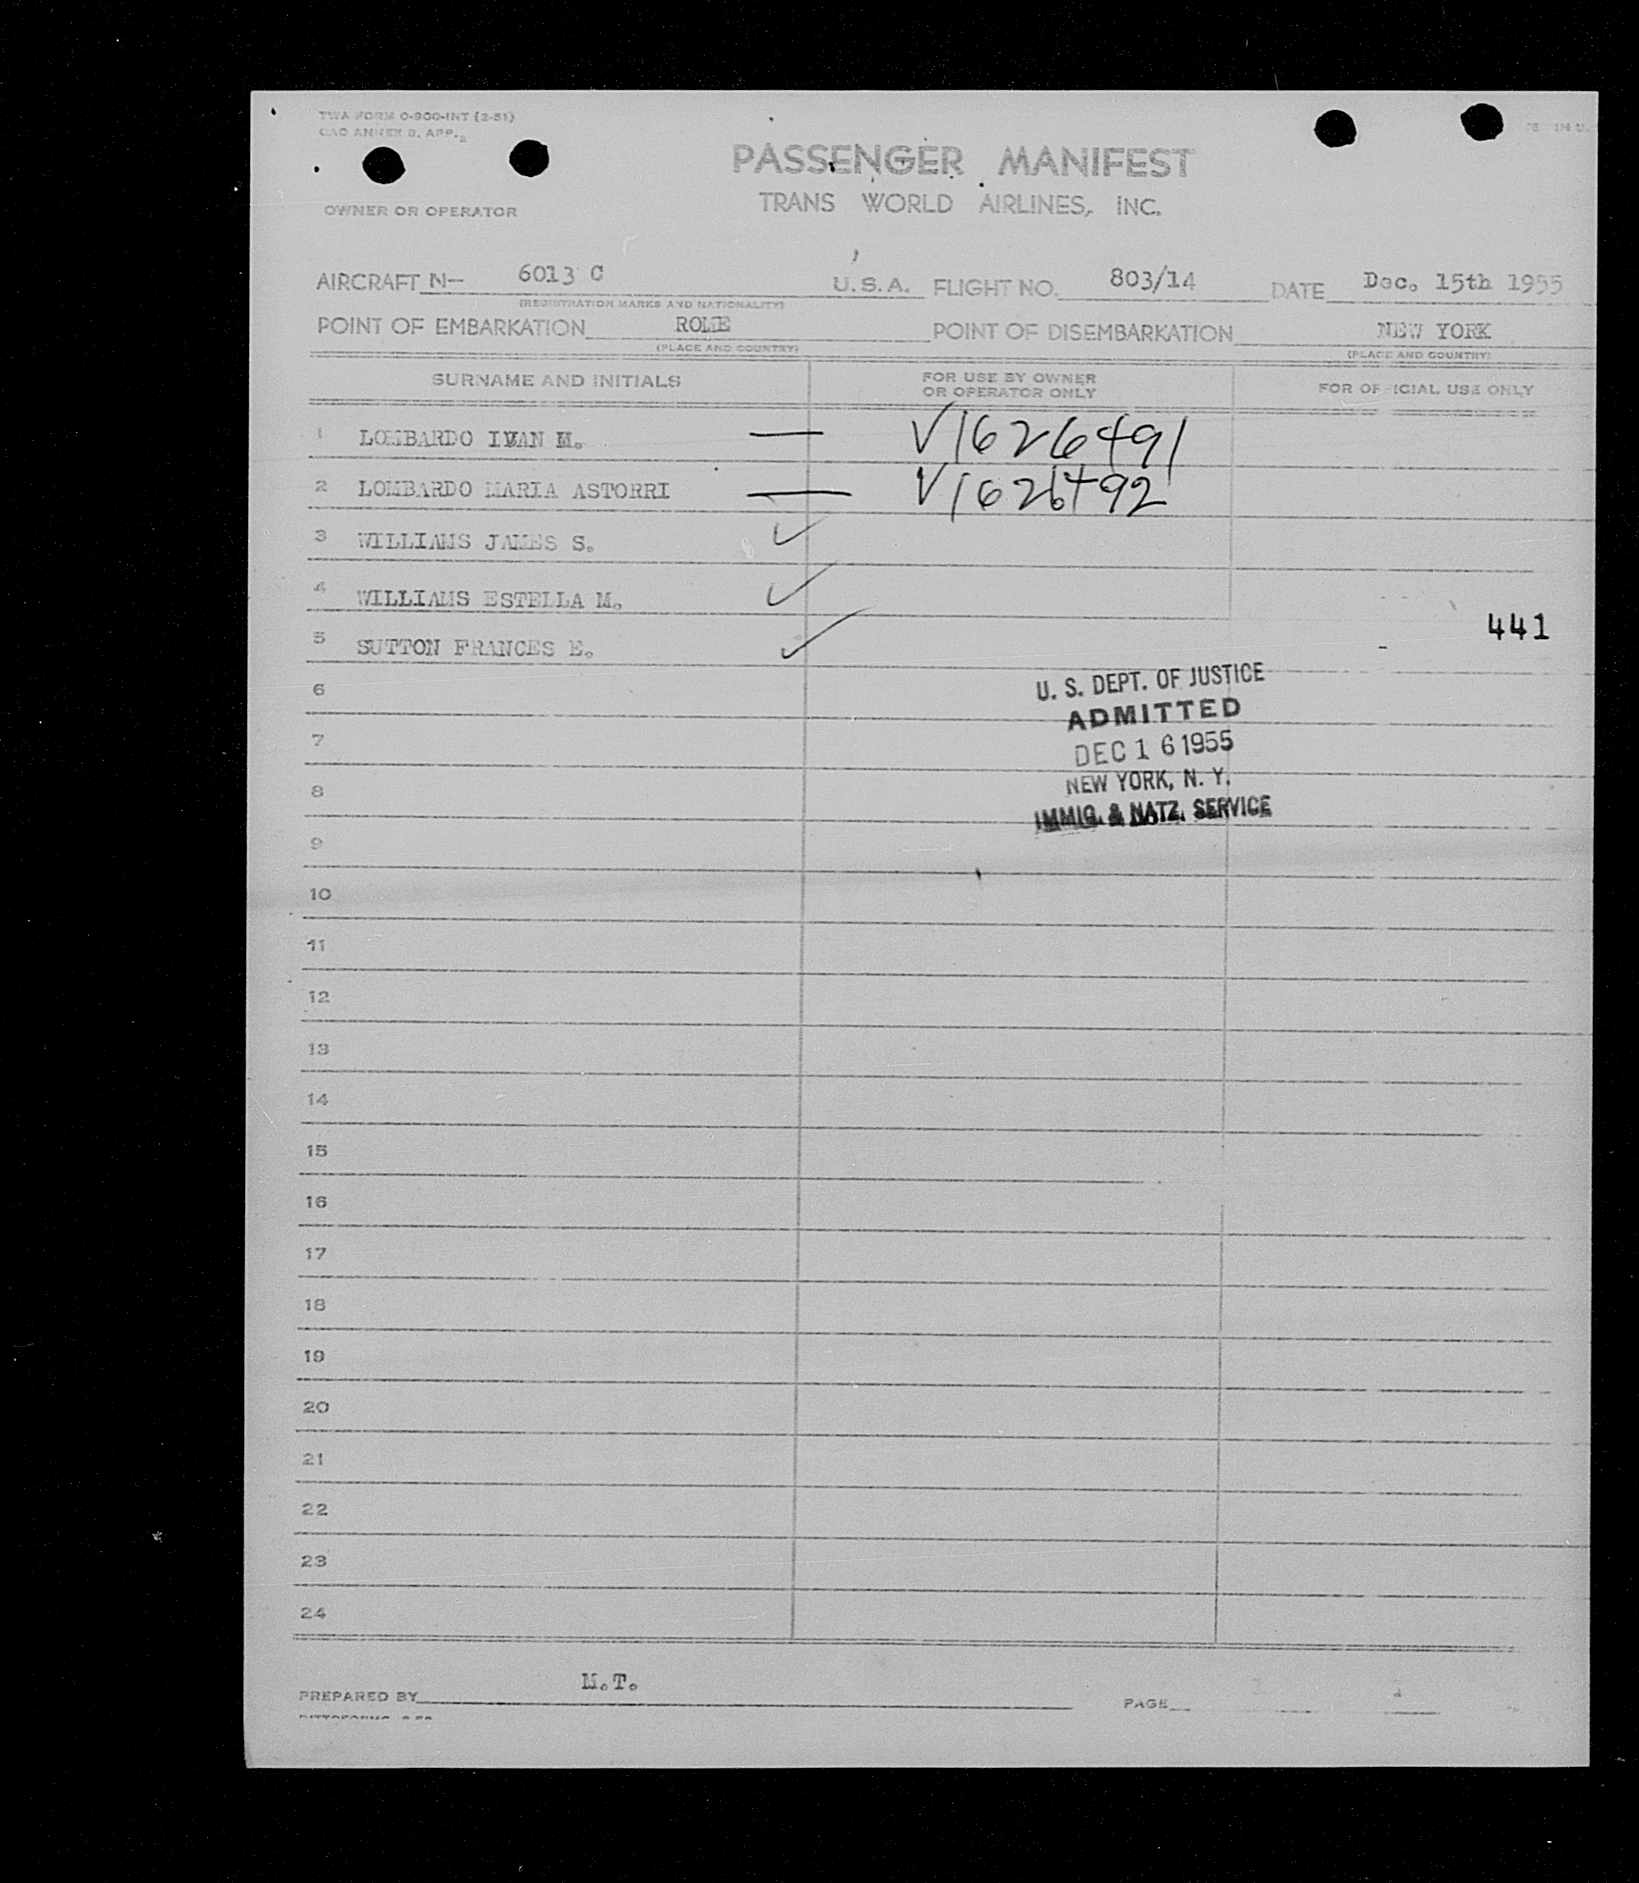 TWA FORM O-900-INT (2-51)
OWNER OR OPERATOR
PASSENGER MANIFEST
TRANS WORLD AIRLINES, INC.
AIRCRAFT N- 6013 C U.S.A. FLIGHT NO. 803/14 DATE Dec. 15th 1955
(REGISTRATION MARKS AND NATIONALITY)
POINT OF EMBARKATION ROME POINT OF DISEMBARKATION NEW YORK
(PLACE AND COUNTRY) (PLACE AND COUNTRY)
SURNAME AND INITIALS FOR USE BY OWNER OR OPERATOR ONLY FOR OFFICIAL USE ONLY
1 LOMBARDO IVAN M. — V1626491
2 LOMBARDO MARIA ASTORRI — V1626492
3 WILLIAMS JAMES S. ✓
4 WILLIAMS ESTELLA M. ✓
441
5 SUTTON FRANCES E. ✓
U. S. DEPT. OF JUSTICE
ADMITTED
DEC 16 1955
NEW YORK, N. Y.
IMMIG. & NATZ. SERVICE
6
7
8
9
10
11
12
13
14
15
16
17
18
19
20
21
22
23
24
PREPARED BY M.T. PAGE